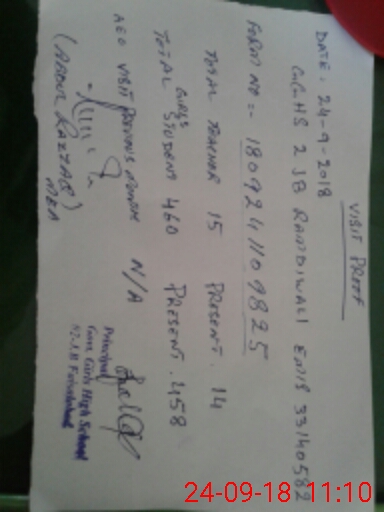 VISIT PROFF
DATE: 24-9-2018
GGHS 2 JB RAMDIWALI EMIS 33140582
FORM NO:- 1809241109825
TOTAL TEACHER 15 PRESENT. 14
GIRLS
TOTAL STUDENT 460 PRESENT. 458
AEO VISIT PREVIOUS MONTH N/A
(ABDUL RAZZAQ)
MEA
Principal
Govt. Girls High School
J.B Faisalabad
24-09-18 11:10